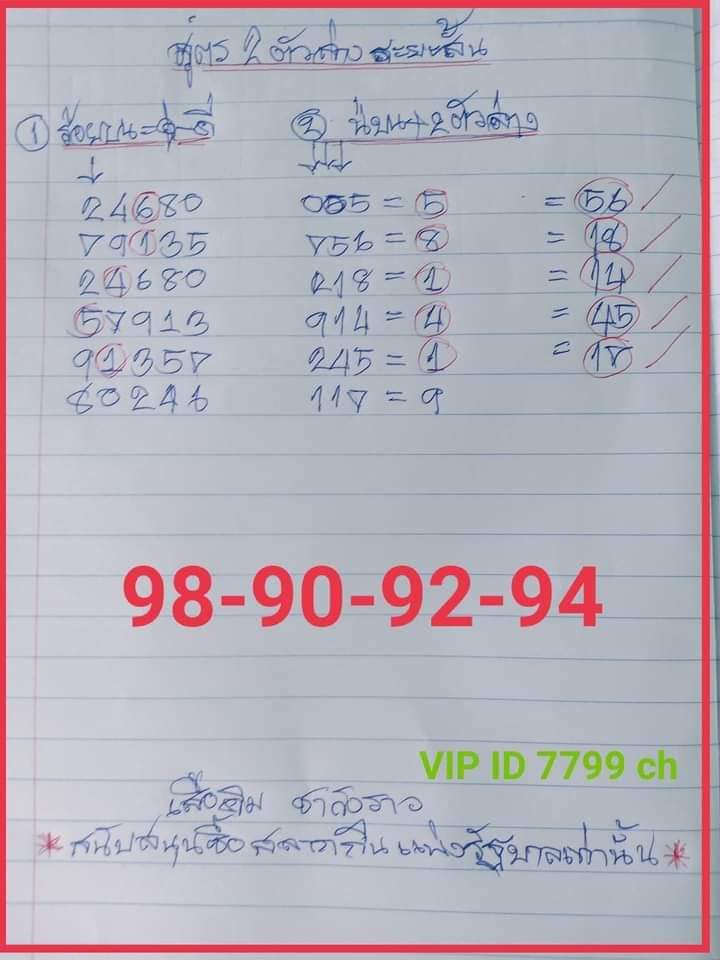 สูตร 2 ตัวล่าง ระยะสั้น
① ร้อยบน = คู่-คี่ ② น่บน+2ตัวล่าง
24680 065 = 5 = 56
79135 756 = 8 = 18
24680 218 = 1 = 14
57913 914 = 4 = 45
91357 245 = 1 = 17
80246 117 = 9
98-90-92-94
VIP ID 7799 ch
เสือยิ้ม ชากังราว
*สนับสนุนซื้อสลากกินแบ่งรัฐบาลเท่านั้น*